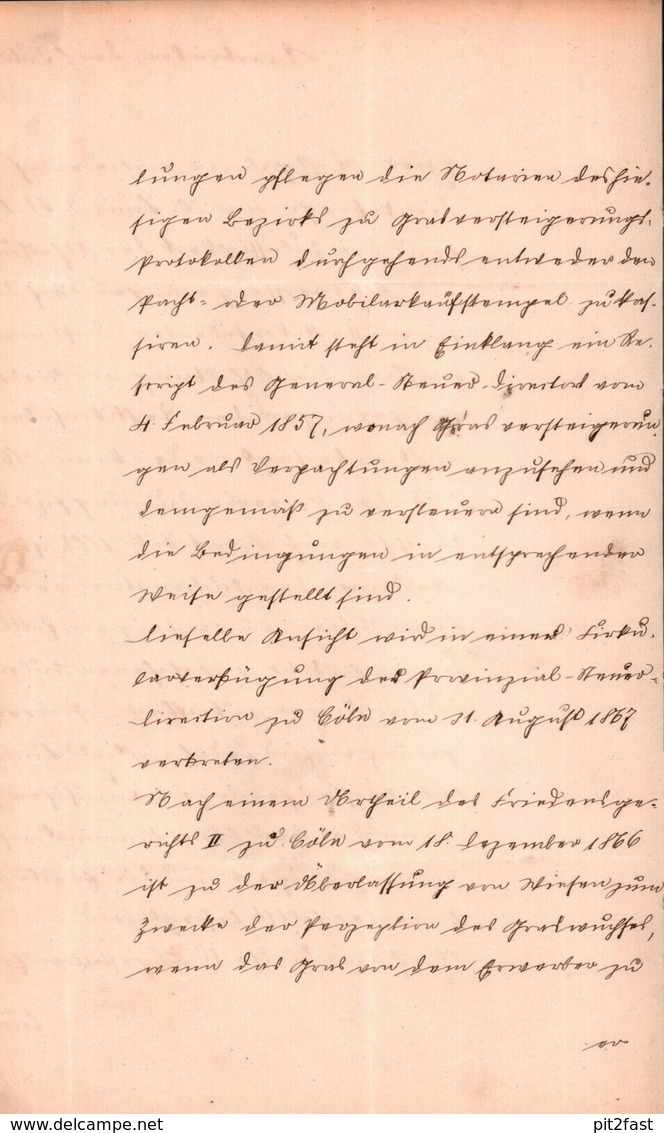 lungen pflegen die Notarien des hie-
sigen Bezirks zu Grasversteigerungs-
Protokollen durchgehends entweder den
Pacht- oder Mobilarkaufstempel zu kas-
siren. Damit steht in Einklang ein Re-
script des General-Steuer-Directors vom
4. Februar 1857, wonach Grasversteigerun-
gen als Verpachtungen anzusehen und
demgemäß zu versteuern sind, wenn
die Bedingungen in entsprechender
Weise gestellt sind.
Dieselbe Ansicht wird in einer Cirku-
larverfügung der Provinzial-Steuer-
Direction zu Cöln vom 31. August 1867
vertreten.
Nach einem Urtheil des Friedensge-
richts II zu Cöln vom 18. Dezember 1866
ist zu der Überlassung von Wiesen zum
Zwecke der Perzeption des Graswuchses,
wenn das Gras von dem Erwerber zu
er
hosted on
HIP-POST.COM
pit2fast